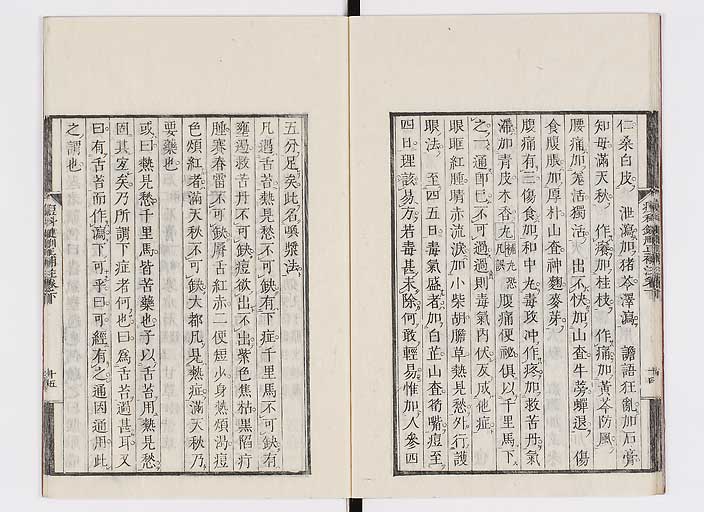 仁桑白皮 泄瀉加猪苓澤瀉 譫語狂亂加石膏
知母滿天秋 作癢加桂枝 作痛加黃芩防風
腰痛加羗活獨活 出不快加山査牛蒡蟬退 傷
食腹脹加厚朴山査神麹麥芽
腹痛有三傷食加和中丸毒攻冲作疼加救苦丹氣
滯加青皮木香丸 腹痛便祕俱以千里馬下
之一通即已不可過過則毒氣內伏反成他症
眼眶紅腫睛赤流淚加小柴胡膽草熱見愁外行護
眼法 至四五日毒氣盛者加白芷山査 痘至
四日理該易方若毒甚未除何敢輕易惟加人參四
五分足矣此名喚漿法
凡遇舌苔熱見愁不可缺有下症千里馬不可缺有
壅遏救苦丹不可缺痘欲出不出紫色焦枯黑陷疔
腫寒春雷不可缺脣舌紅赤二便短少身熱煩渴痘
色頰紅者滿天秋不可缺大都凡是熱症滿天秋乃
要藥也
或曰熱見愁千里馬皆苦藥也子以舌苔用熱見愁
固其宜矣乃所謂下症者何也曰爲舌苔過甚耳又
曰有舌苔而作瀉下可乎曰可經有之通因通用此
之謂也
十四
十五